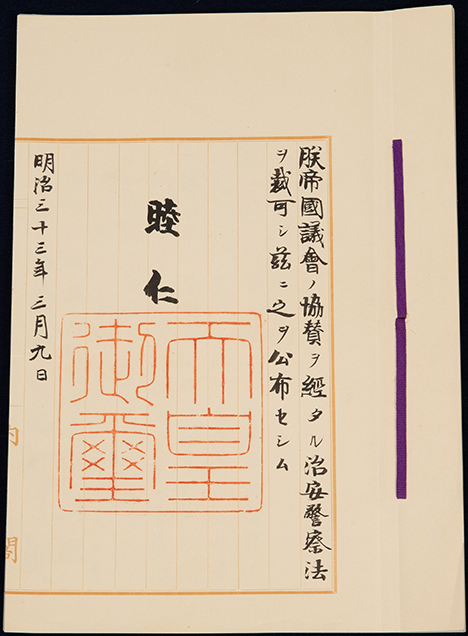 朕帝國議會ノ協賛ヲ經タル治安警察法
ヲ裁可シ茲ニ之ヲ公布セシム
睦仁
天皇
御璽
明治三十三年三月九日
内閣